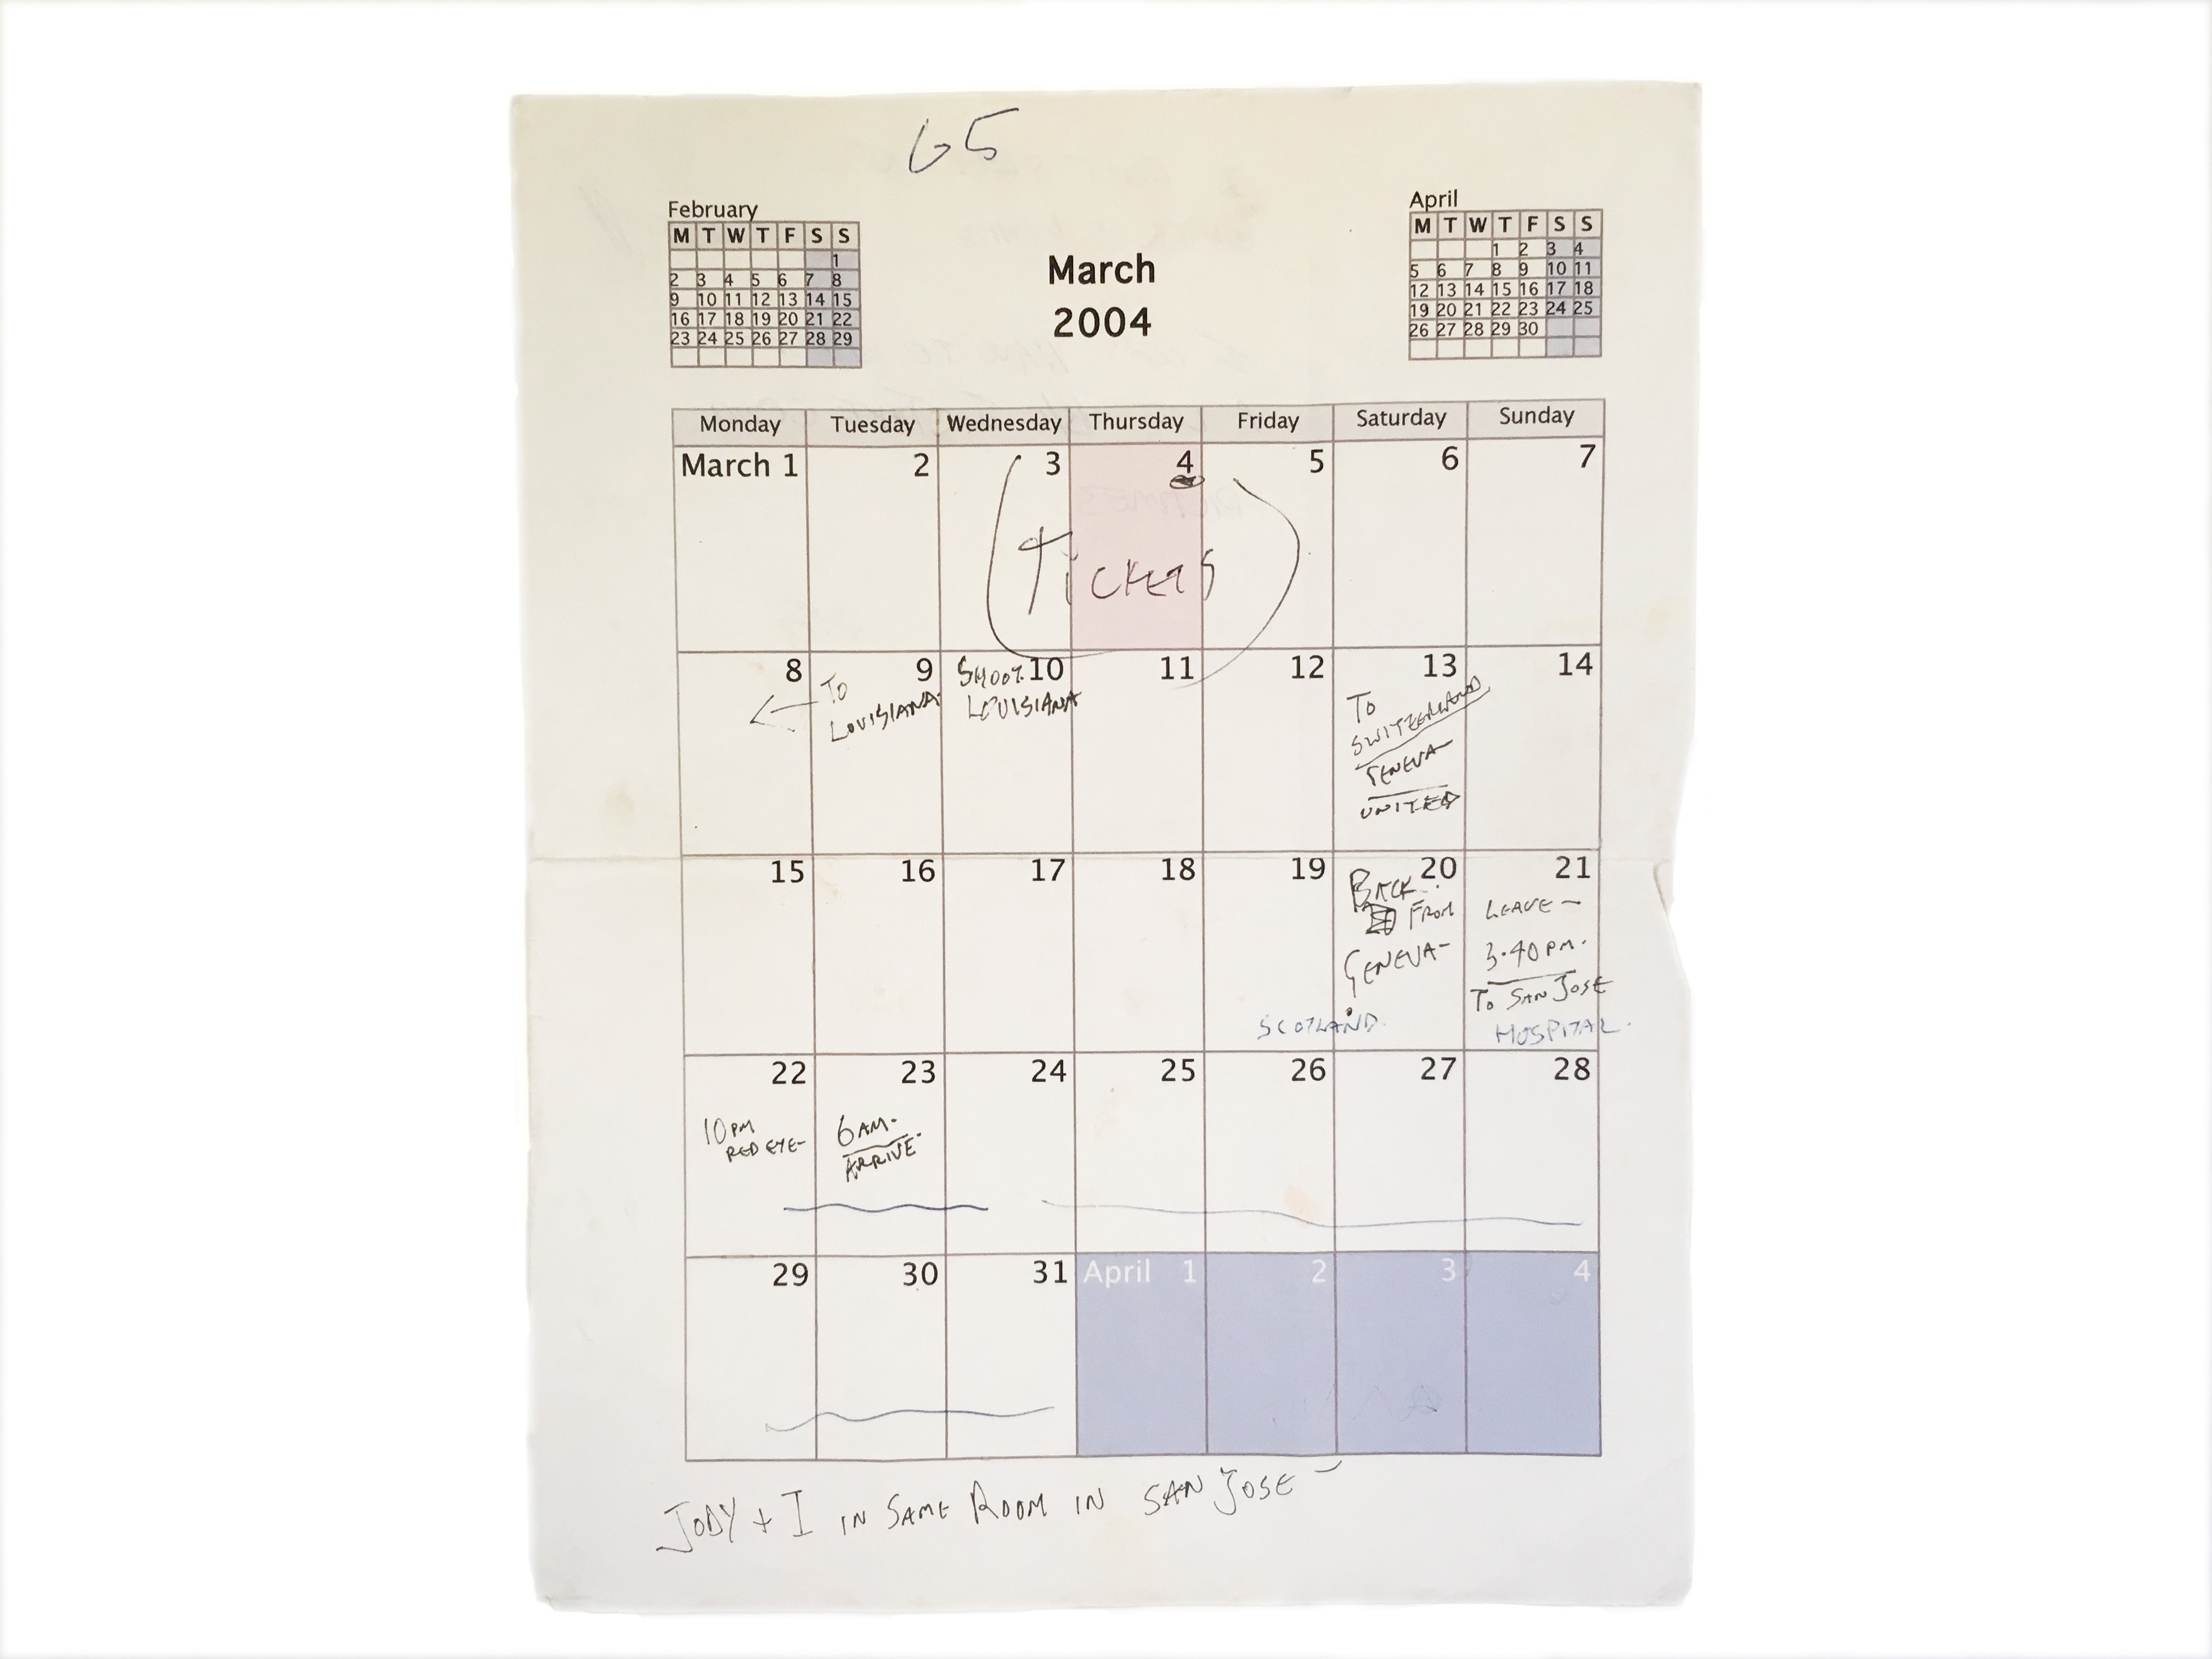 G5
February
M T W T F S S
1
2 3 4 5 6 7 8
9 10 11 12 13 14 15
16 17 18 19 20 21 22
23 24 25 26 27 28 29
March
2004
April
M T W T F S S
1 2 3 4
5 6 7 8 9 10 11
12 13 14 15 16 17 18
19 20 21 22 23 24 25
26 27 28 29 30
Monday Tuesday Wednesday Thursday Friday Saturday Sunday
March 1 2 3 4 5 6 7
Tickets
8 9 10 11 12 13 14
TO
LOUISIANA
SHOOT
LOUISIANA
TO
SWITZERLAND
GENEVA-
UNITED
15 16 17 18 19 20 21
BACK
FROM
GENEVA-
SCOTLAND.
LEAVE -
3.40 PM.
TO SAN JOSE
HOSPITAL.
22 23 24 25 26 27 28
10 PM
RED EYE-
6 AM-
ARRIVE.
29 30 31 April 1 2 3 4
JODY + I IN SAME ROOM IN SAN JOSE -